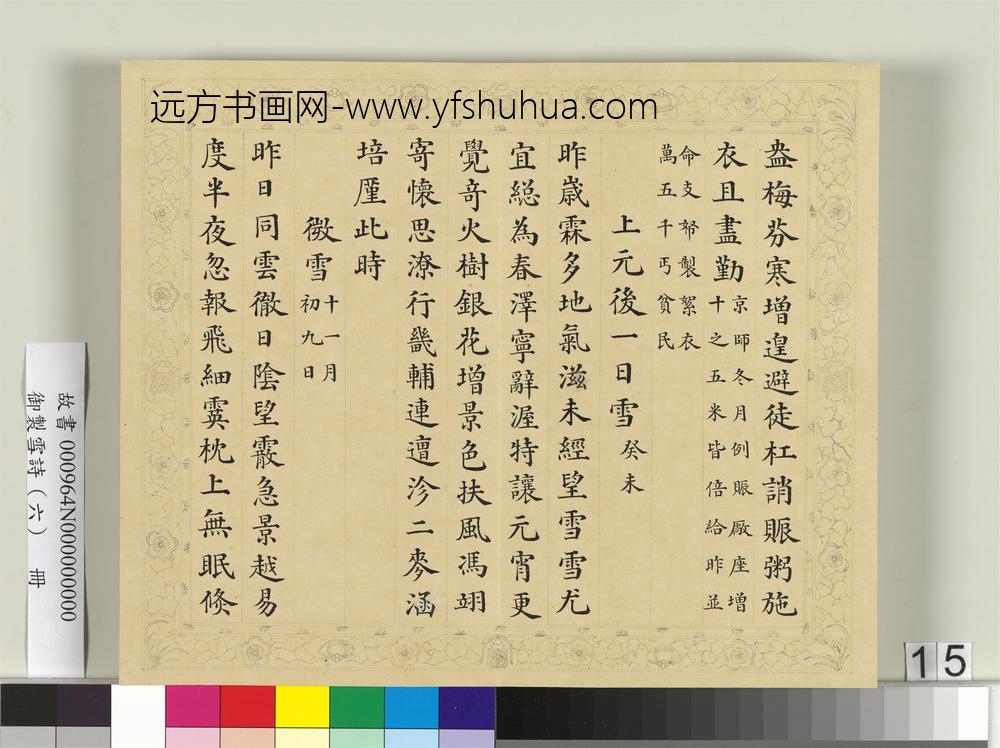 远方书画网-www.yfshuhua.com
盎梅芬寒增遑避徒杠誚賑粥施
衣且盡勤京師冬月例賑厰座增
十之五米皆倍給昨並
命支帑製絮衣
萬五千丐貧民
上元後一日雪癸未
昨歲霖多地氣滋未經望雪雪尤
宜緫為春澤寧辭渥特讓元宵更
覺竒火樹銀花增景色扶風馮翊
寄懷思潦行畿輔連邅沴二麥涵
培厪此時
微雪十一月
初九日
昨日同雲徹日陰望霰急景越易
度半夜忽報飛細霙枕上無眠倏
故書 000964N000000000
御製雪詩(六) 冊
15